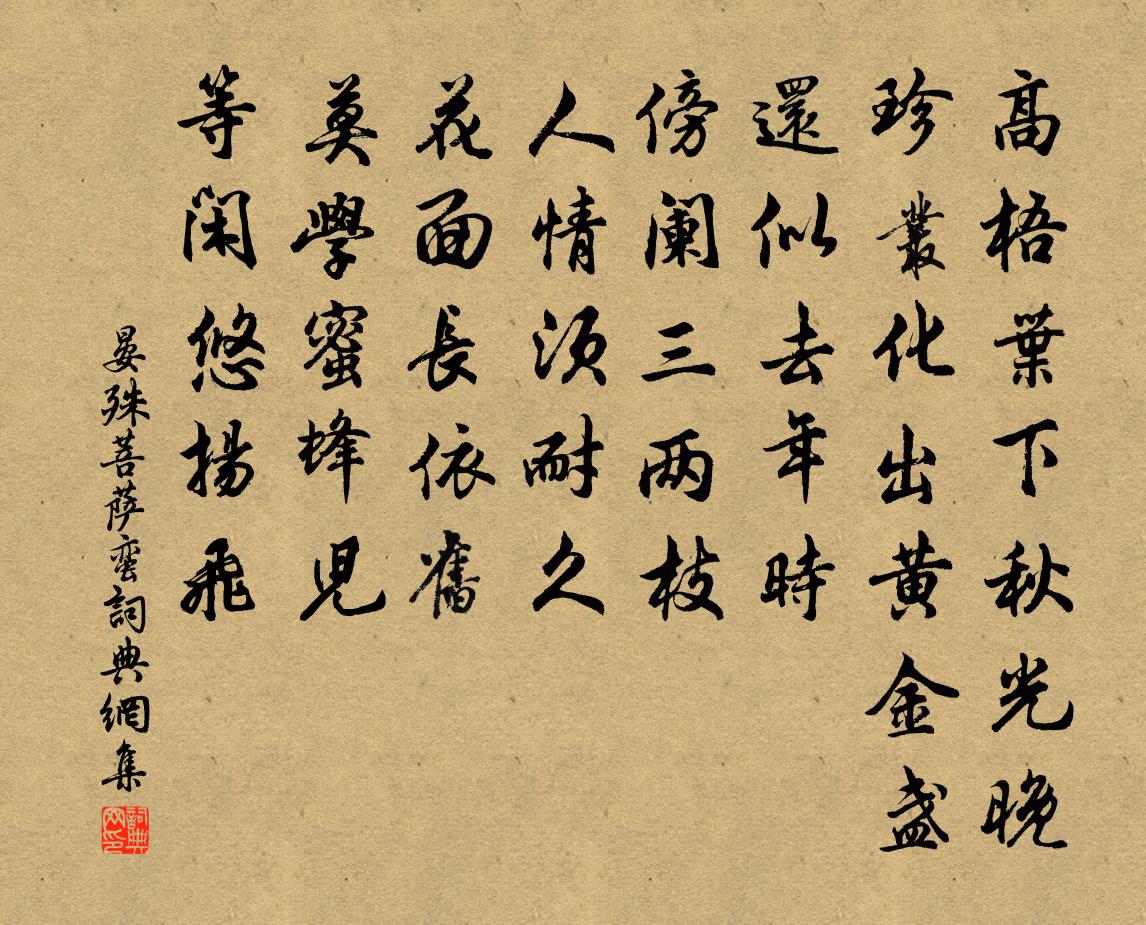 高梧葉下秋光晚
珍叢化出黄金盏
還似去年時
傍阑三两枝
人情須耐久
花面長依舊
莫學蜜蜂兒
等閑悠揚飛
晏殊菩萨蛮詞典網集
詞典网印